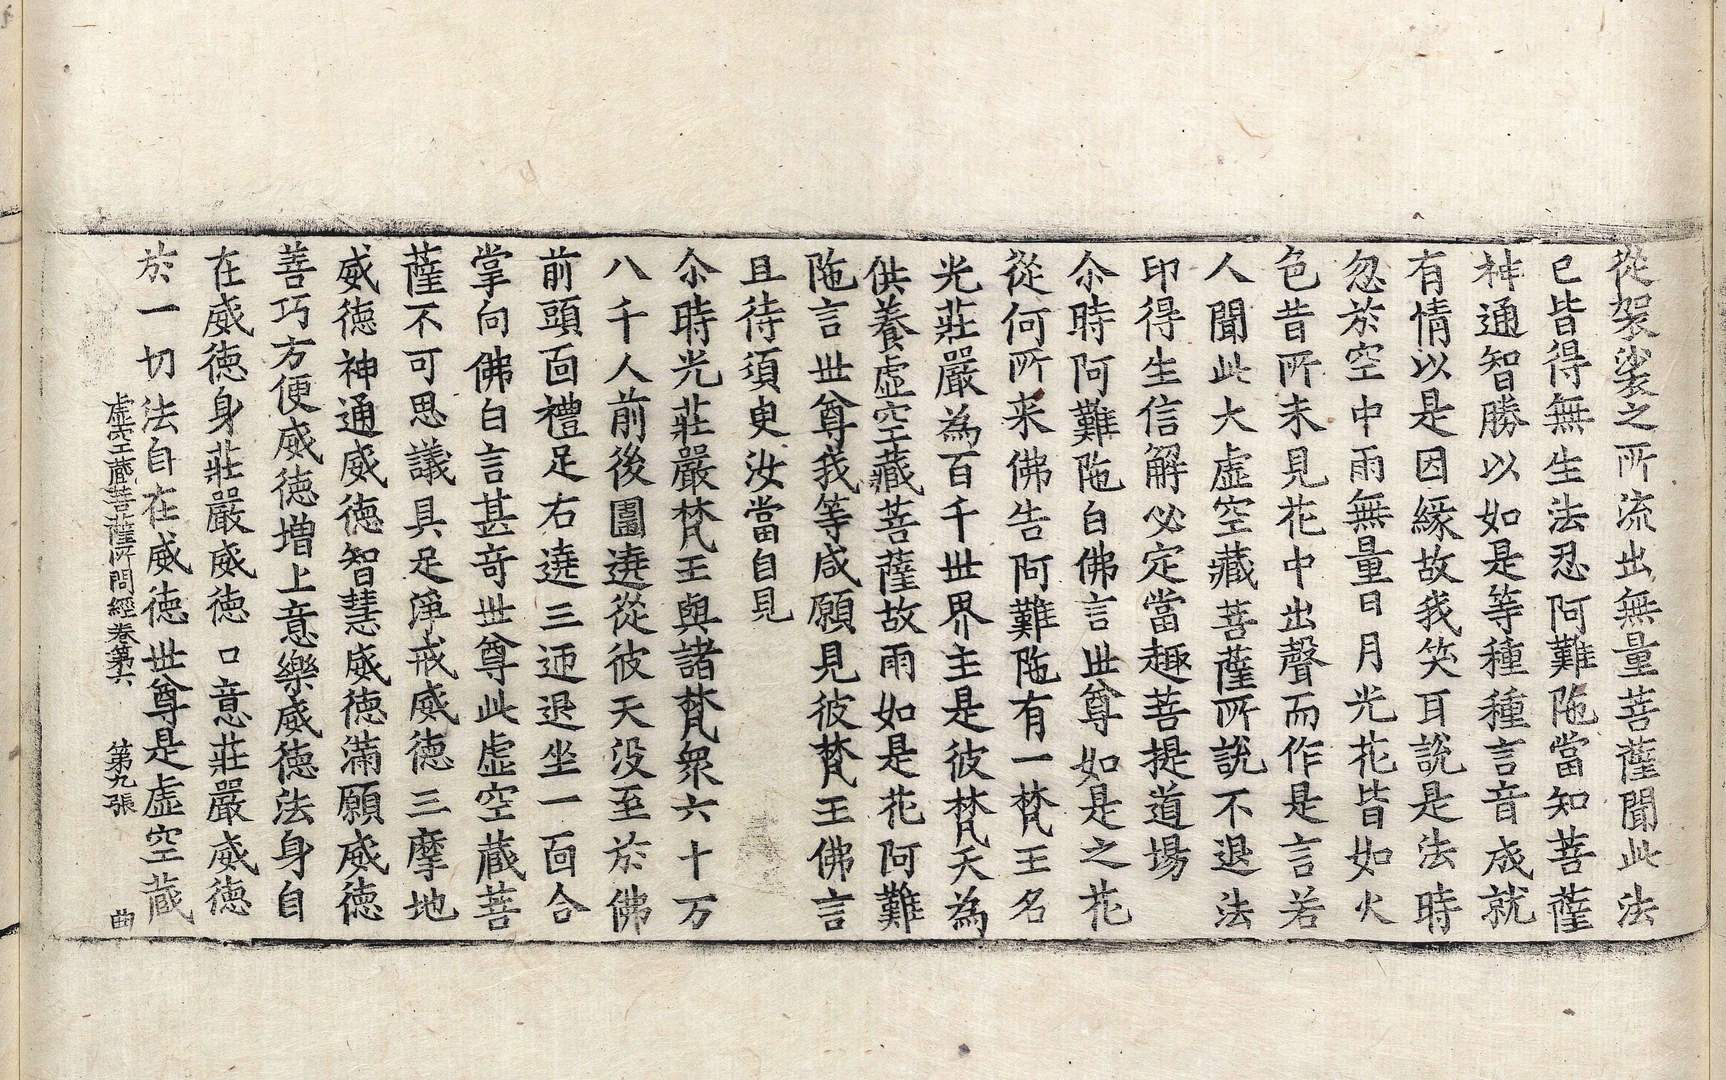 從袈裟之所流出無量菩薩聞此法
已皆得無生法忍阿難陁當知菩薩
神通智勝以如是等種種言音成就
有情以是因緣故我笑耳說是法時
忽於空中雨無量日月光花皆如火
色昔所未見花中出聲而作是言若
人聞此大虛空藏菩薩所說不退法
印得生信解必定當趣菩提道場
尒時阿難陁白佛言世尊如是之花
從何所来佛告阿難陁有一梵王名
光莊嚴為百千世界主是彼梵天為
供養虛空藏菩薩故雨如是花阿難
陁言世尊我等咸願見彼梵王佛言
且待須臾汝當自見
尒時光莊嚴梵王與諸梵衆六十万
八千人前後圍遶從彼天没至於佛
前頭面禮足右遶三迊退坐一面合
掌向佛白言甚奇世尊此虛空藏菩
薩不可思議具足淨戒威德三摩地
威德神通威德智慧威德滿願威德
善巧方便威德增上意樂威德法身自
在威德身莊嚴威德口意莊嚴威德
於一切法自在威德世尊是虛空藏
虛空藏菩薩所問經卷第六　第九張　曲